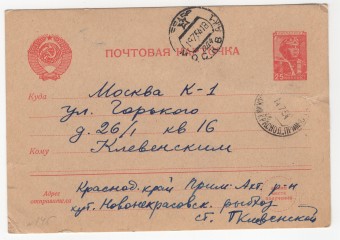 ПОЧТОВАЯ КАРТОЧКА
Куда
Москва К-1
ул. Горького
д. 26/1 кв 16
Кому
Клевенским
Адрес отправителя
Краснод. край Прим-Ахт. р-н
хут. Новонекрасовск. рыбхоз
ст. Клевенской